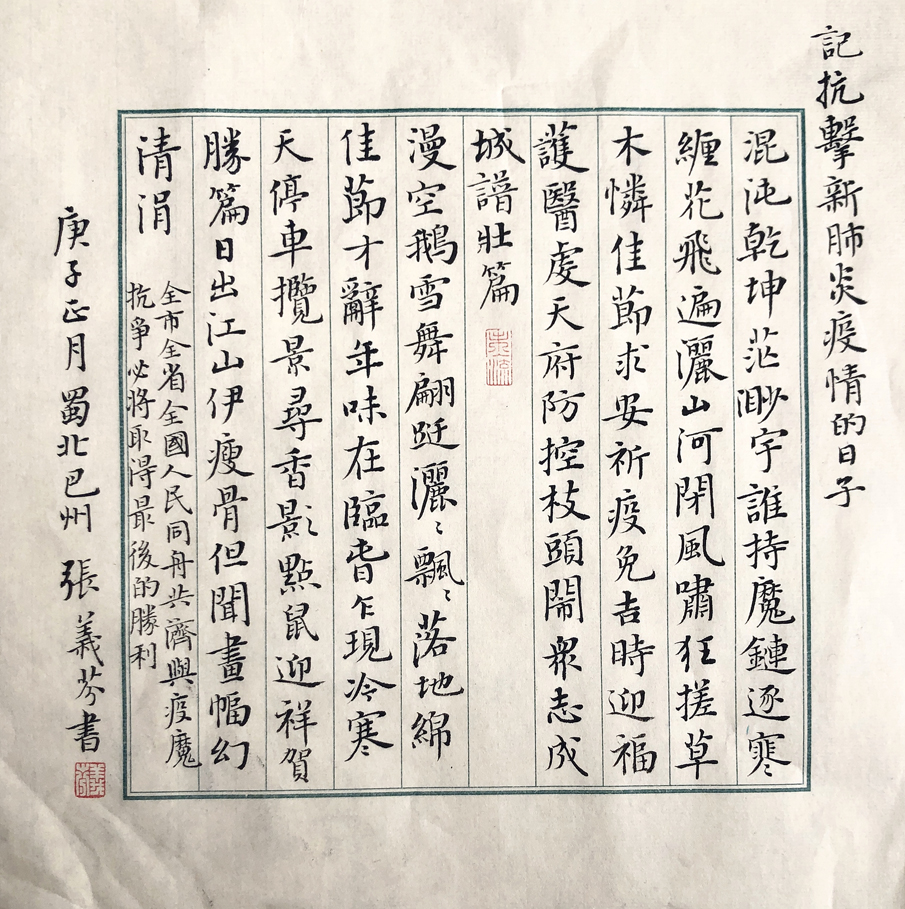 記抗擊新肺炎疫情的日子
混沌乾坤茫渺宇誰持魔鏈逐寒
纏花飛遍灑山河閉風嘯狂搓草
木憐佳節求安祈疫免吉時迎福
護醫虔天府防控枝頭鬧衆志成
城譜壯篇
漫空鵝雪舞翩跹灑〻飄〻落地綿
佳節才辭年味在臨昏乍現冷寒
天停車攬景尋香影點鼠迎祥賀
勝篇日出江山伊瘦骨但聞畫幅幻
清涓
全市全省全國人民同舟共濟與疫魔
抗爭必將取得最後的勝利
庚子正月蜀北巴州張義芬書